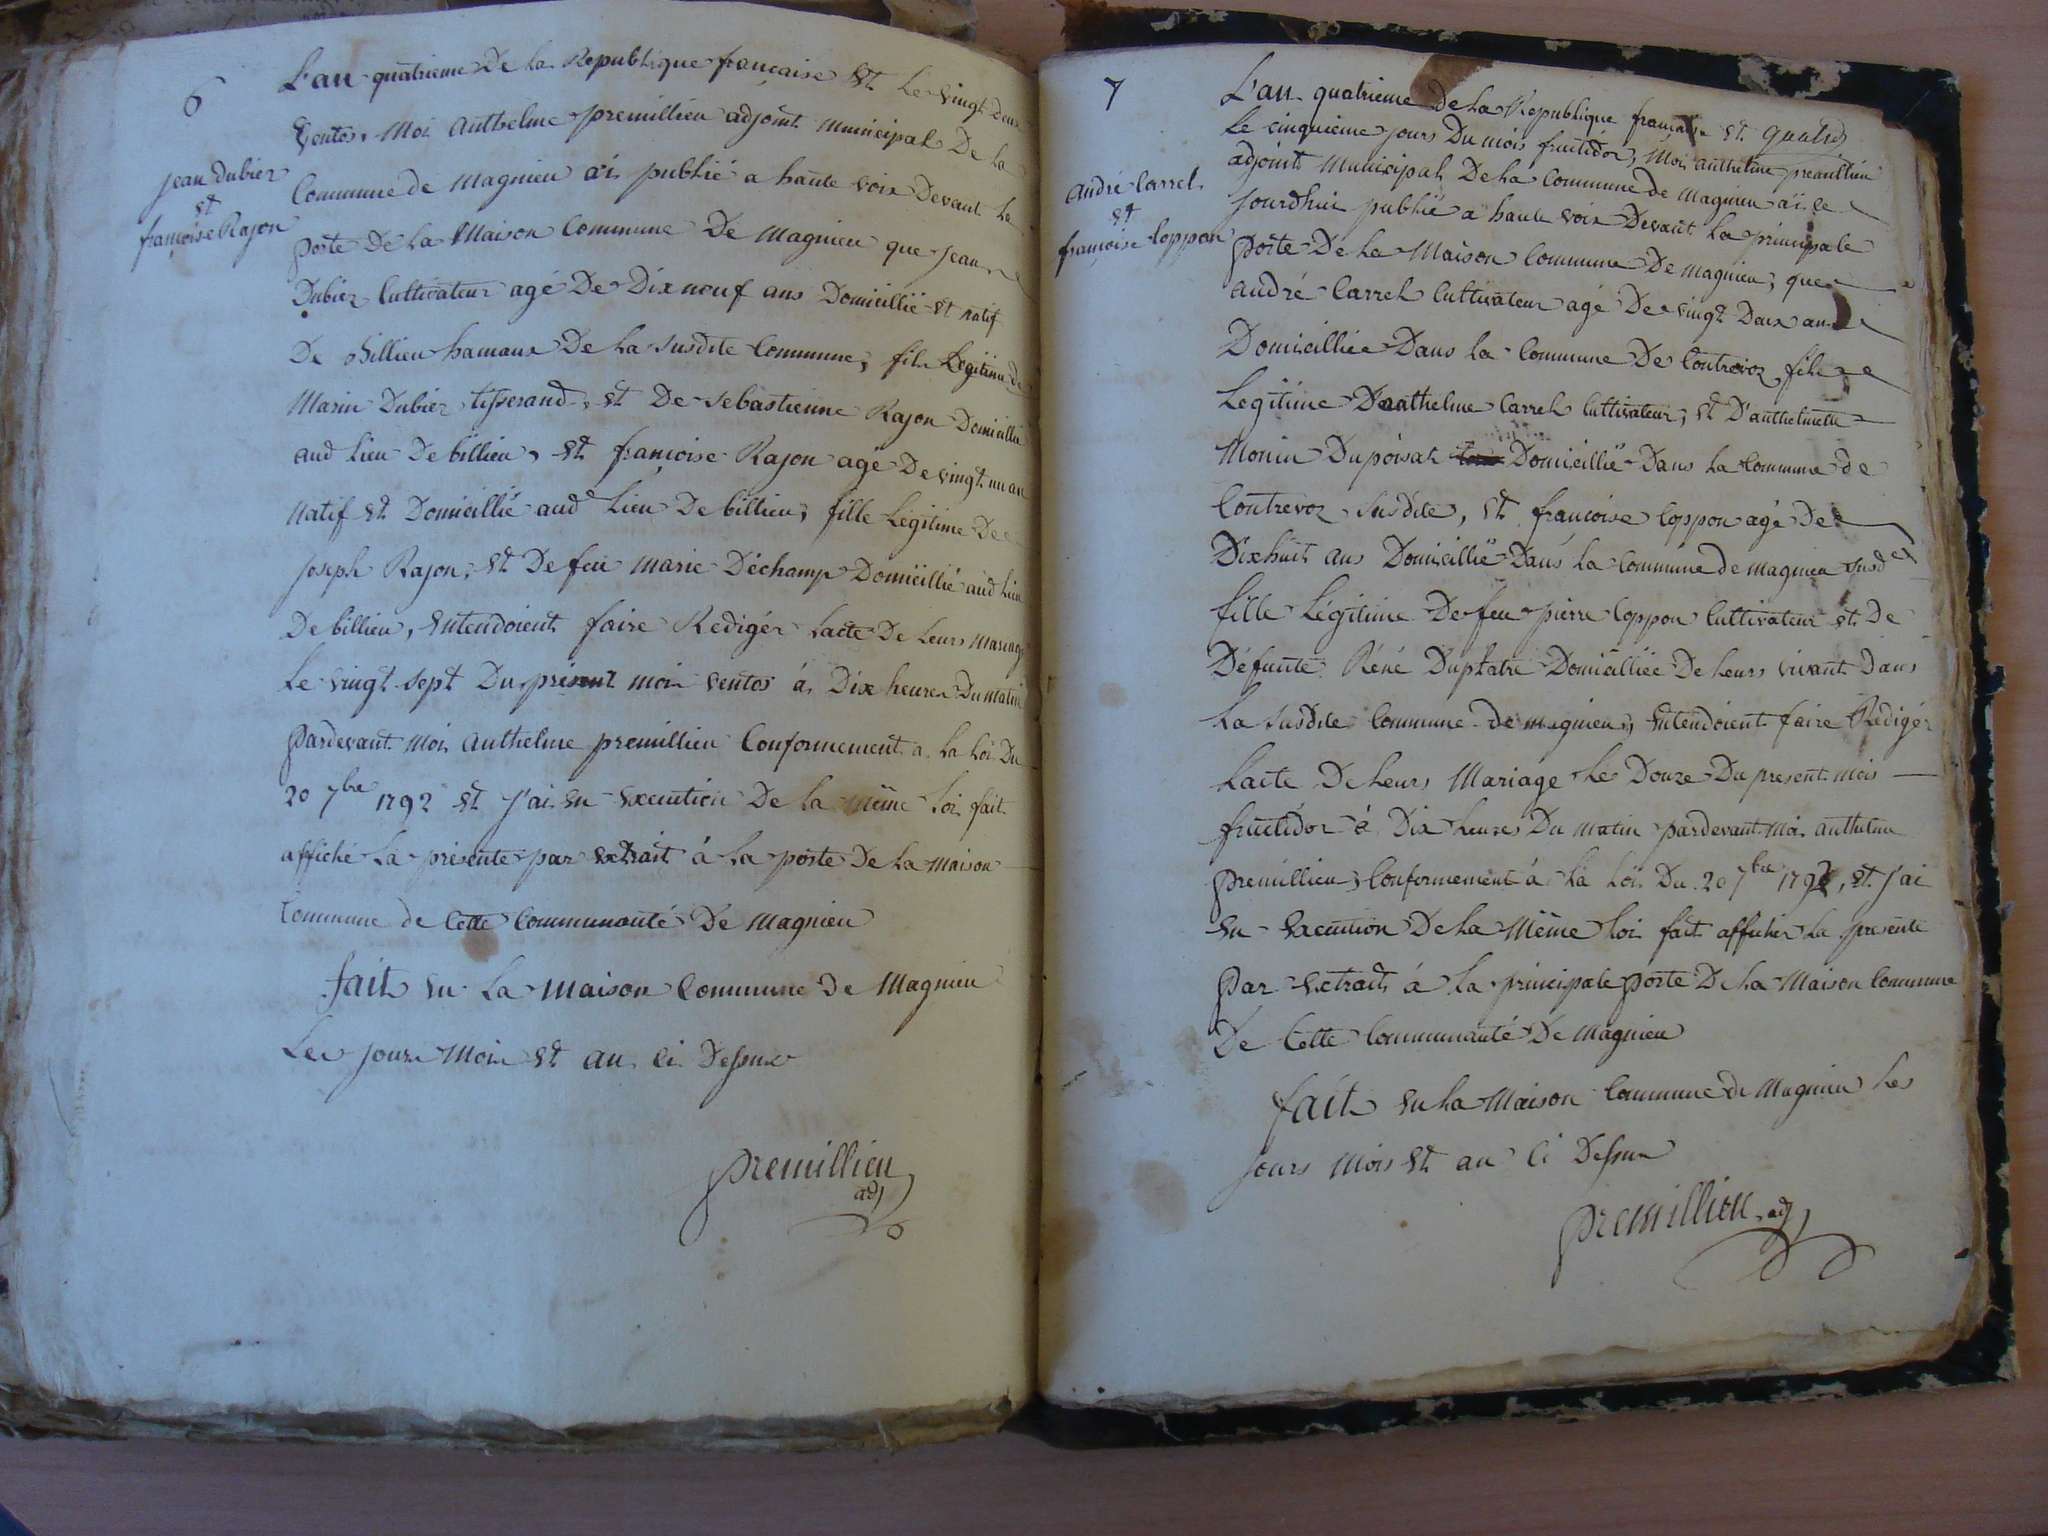 6
L'an quatrieme De la Republique francaise Et le vingt deux
Ventos, Moi Anthelme premillieu adjoint municipal De la
Commune de Magnieu ai publié a haute voix Devant la
porte De la Maison Commune De Magnieu que jean
Dubiez Cultivateur agé De Dix neuf ans Domicillié Et natif
De Billieu hamaux De la susdite Commune, fils Legitime de
Marin Dubiez tisserand, Et De sebastienne Rajon Domicillié
aud Lieu De billieu, Et françoise Rajon agé De vingt un an
Natif Et Domicillié aud Lieu De billieu, fille Legitime De
joseph Rajon, Et De feu Marie Déchamp Domicillié aud Lieu
De billieu, Entendoient faire Redigér Lacte De Leurs Mariage
Le vingt sept Du présent mois ventos á Dix heures Du matin
Pardevant Moi Anthelme premillieu Conformement a la Loi Du
20 7bre 1792 Et J'ai En Execution De la Même Loi fait
affiché La présente par Extrait á La porte De La Maison
Commune de Cette Communauté De Magnieu
fait En La Maison Commune De Magnieu
Les jours Mois Et an Ci Dessus
premillieu
adj
jean dubiez
Et
françoise Rajon
7
L'an quatrieme De la Republique française Et quatres
Le cinquieme jours Du mois fructidor, Moi anthelme premillieu
adjoint Municipal De la Commune de Magnieu ai ce
jourdhui publié a haute voix Devant La principale
Porte De La Maison Commune De Magnieu, que
André Carrel Cultivateur agé De vingt Deux ans
Domicilliée Dans La Commune De Contrevoz fils
Legitime D'anthelme Carrel Cultivateur, Et D'anthelmette
Monin Dupoisat Domicillié Dans La Commune de
Contrevoz susdite, Et françoise Coppon agé De
Dixhuit ans Domicillié Dans La Commune de Magnieu susde
fille Légitime De feu pierre Coppon Cultivateur Et De
Défunte Réné Duplatre Domicilliée De Leurs vivant Dans
La susdite Commune de Magnieu, Entendoient faire Redigér
Lacte De Leurs Mariage Le Douze Du present mois
fructidor á Dix heures Du matin pardevant Moi anthelme
premillieu, Conformement á La Loi Du 20 7bre 1792, Et J'ai
En Execution De La Même Loi fait afficher La presente
Par Extrait á La principale porte De La Maison Commune
De Cette Communauté De Magnieu
fait En La Maison Commune De Magnieu Les
Jours Mois Et an Ci Dessus
premillieu adj
André Carrel
Et
françoise Coppon